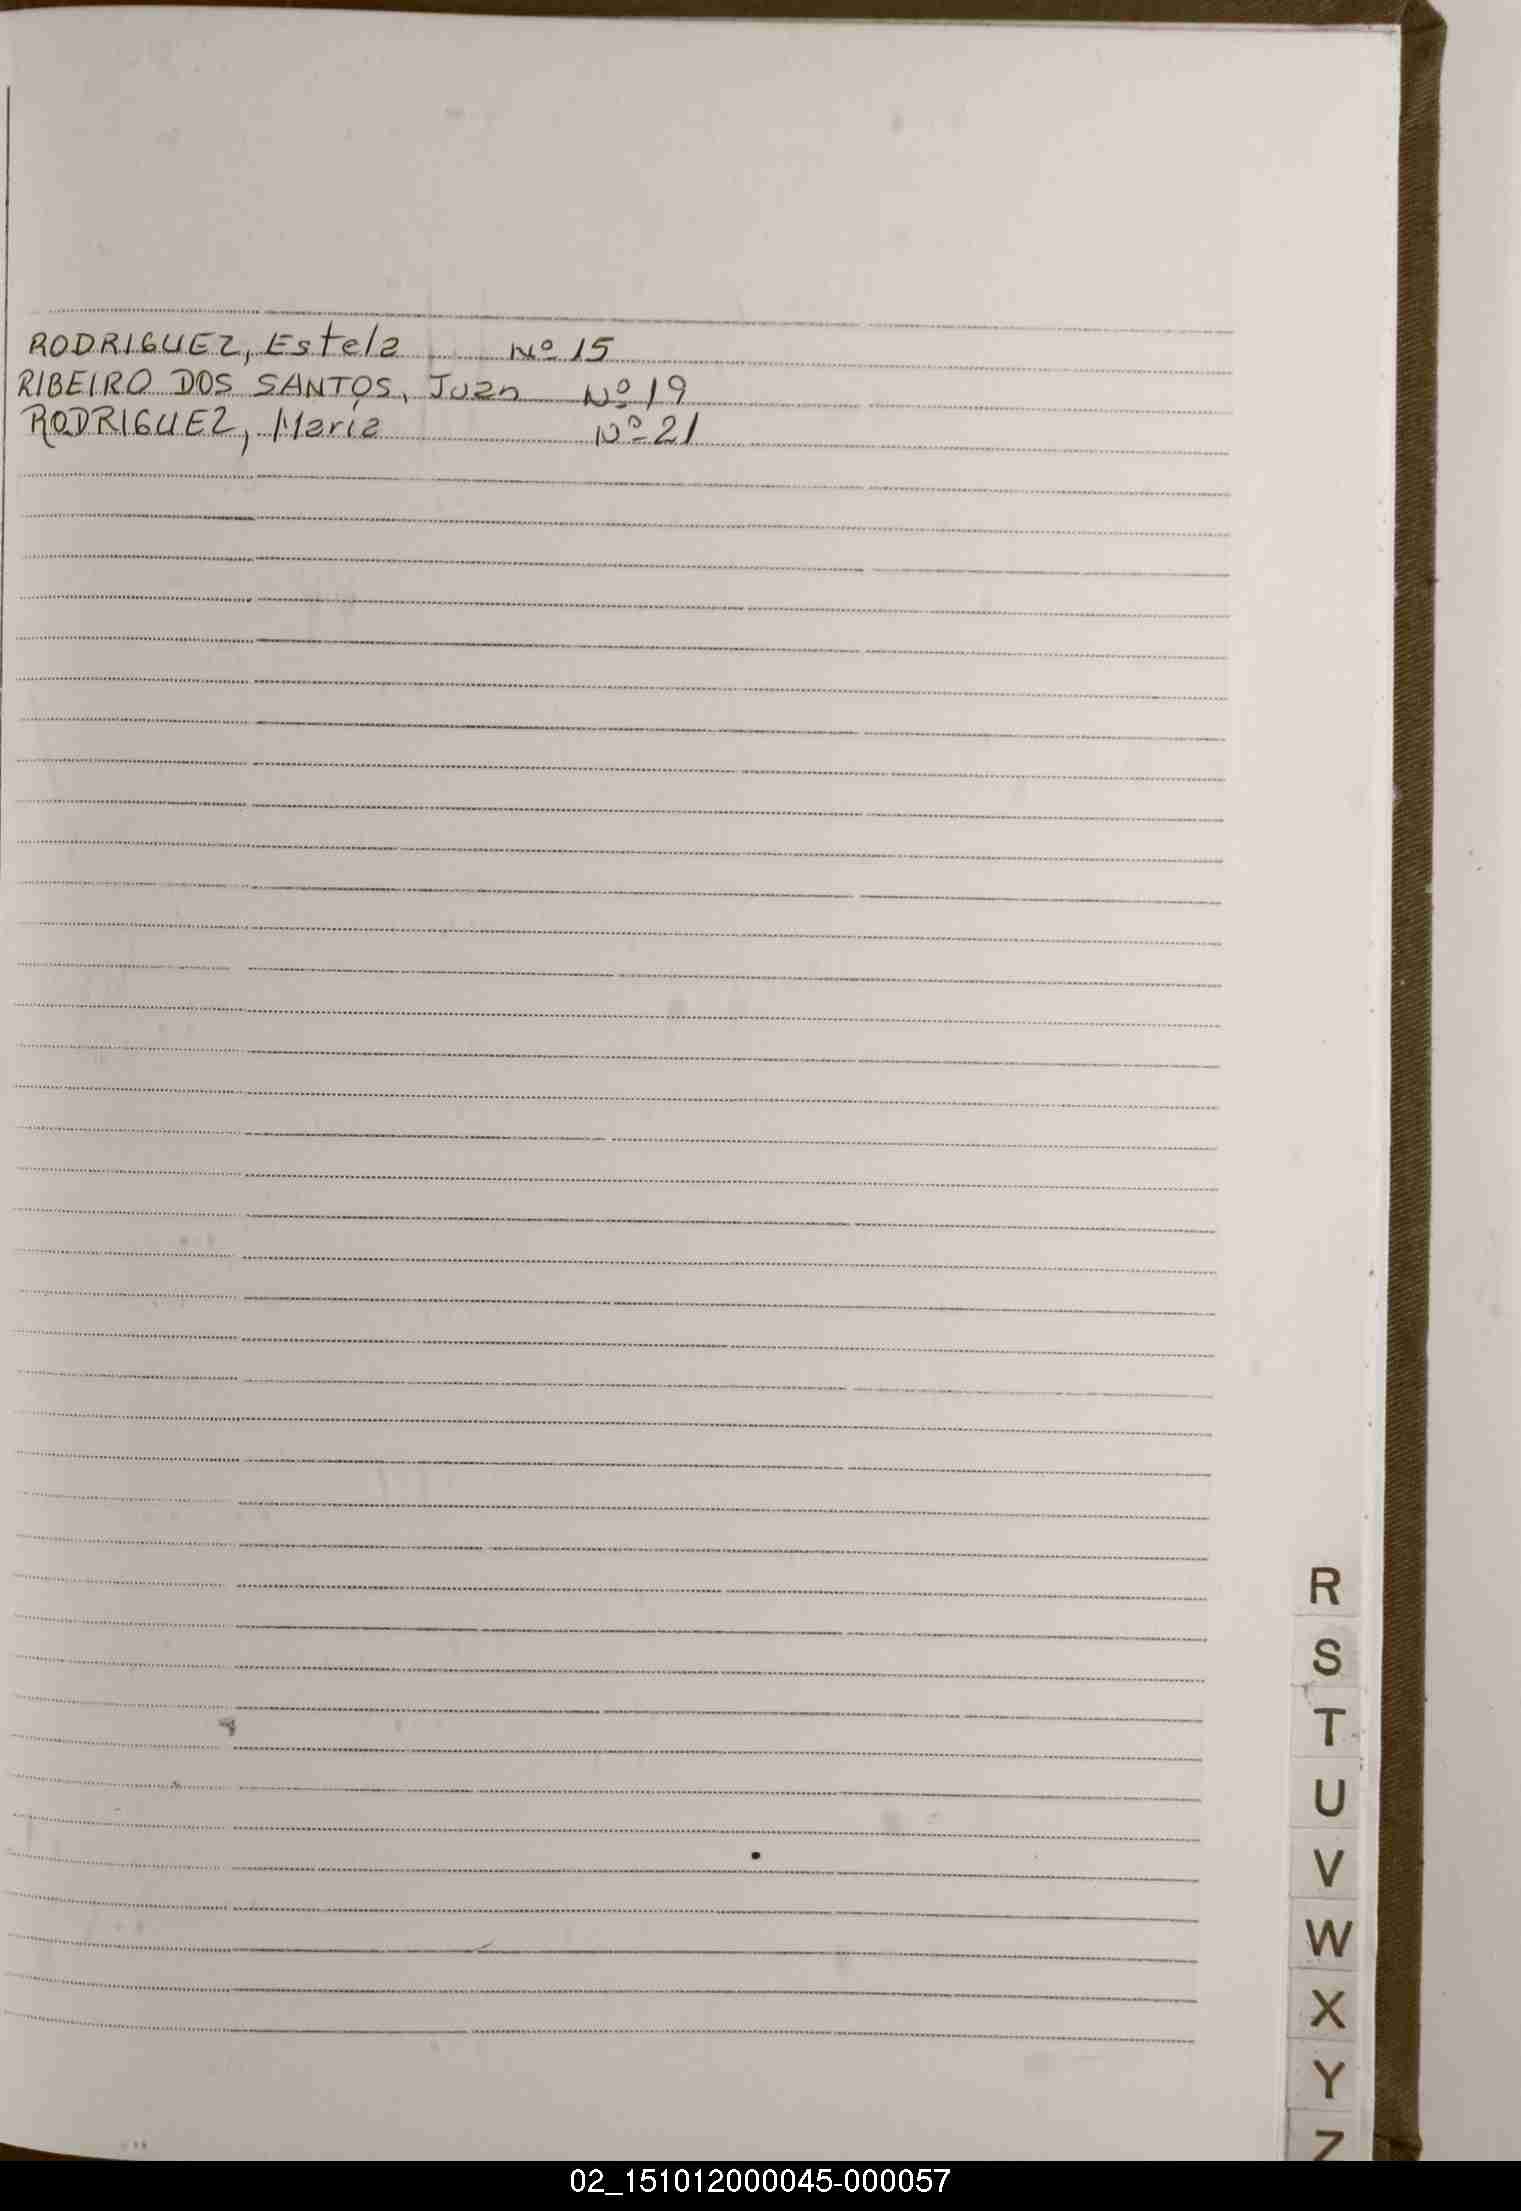 RODRIGUEZ, Estela Nº 15
RIBEIRO DOS SANTOS, Juan Nº 19
RODRIGUEZ, Maria Nº 21
R
S
T
U
V
W
X
Y
Z
02_151012000045-000057